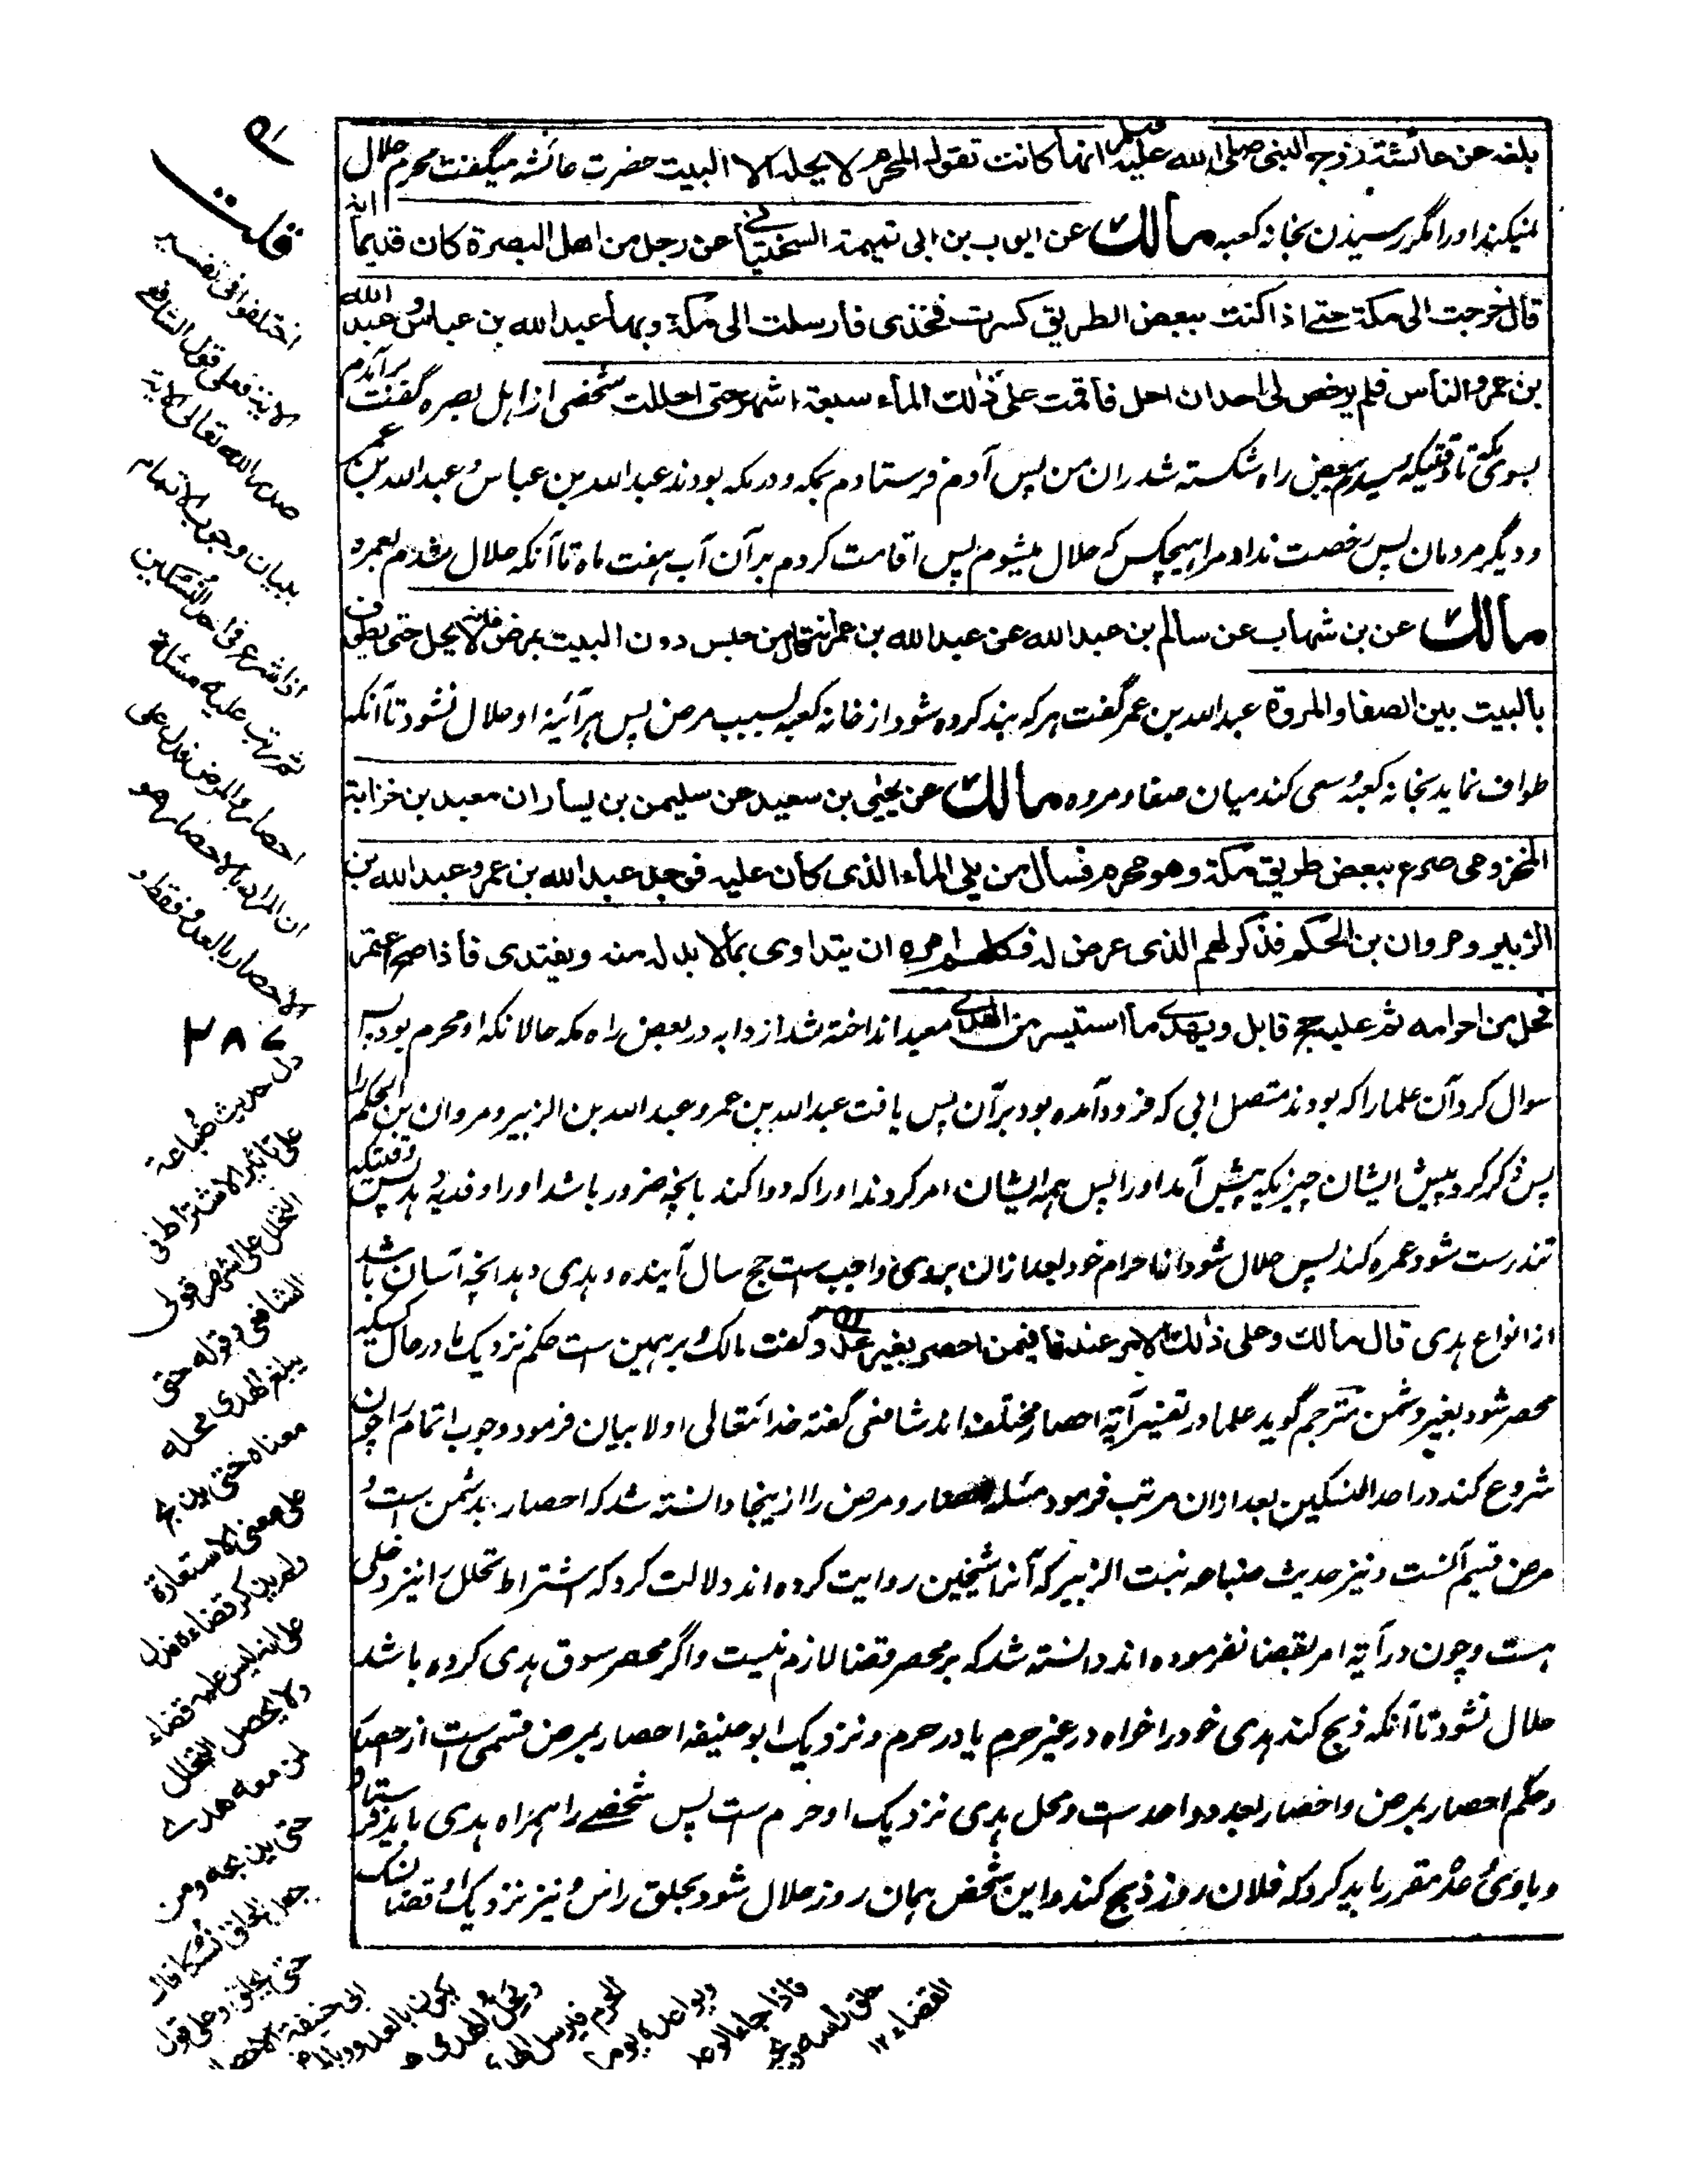 بلغه عن عائشة زوج النبی صلی الله علیه انها کانت تقول المحرم لا یحله الا البیت حضرت عائشه میگفت محرم حلال
نمیکند او را مگر رسیدن بخانه کعبه مالك عن ایوب بن ابی تمیمة السختیانی عن رجل من اهل البصرة کان قدیما انه
قال خرجت الی مکة حتے اذا کنت ببعض الطریق کسرت فخذی فارسلت الی مکة وبها عبد الله بن عباس وعبد الله
بن عمر والناس فلم یرخص لی احد ان احل فاقمت علی ذلك الماء سبعة اشهر حتی احللت شخصی از اهل بصره گفت برآمدم
بسوی مکه تا وقتیکه رسیدم ببعض راه شکسته شد ران من پس آدم فرستادم بمکه و در مکه بودند عبد الله بن عباس و عبد الله بن عمر
و دیگر مردمان پس رخصت نداد مرا هیچکس که حلال میشوم پس اقامت کردم بر آن آب هفت ماه تا آنکه حلال شدم بعمره
مالك عن بن شهاب عن سالم بن عبد الله عن عبد الله بن عمر انه قال من حبس دون البیت بمرض فانه لا یحل حتی یطوف
بالبیت بین الصفا والمروة عبد الله بن عمر گفت هر که بند کرده شود از خانه کعبه بسبب مرض پس هر آئینه او حلال نشود تا آنکه
طواف نماید بخانه کعبه و سعی کند میان صفا و مروه مالك عن یحیی بن سعید عن سلیمن بن یسار ان معبد بن خزابة
المخزومی صرع ببعض طریق مکة وهو محرم فسأل من یلی الماء الذی کان علیه فوجد عبد الله بن عمر وعبد الله بن
الزبیر ومروان بن الحکم فذکر لهم الذی عرض له فکلهم امره ان یتداوی بما لا بد له منه ویفتدی فاذا صح اعتمر
فحل من احرامه ثم علیه حج قابل ویهدی ما استیسر من الهدی معبد انداخته شد از دابه در بعض راه مکه حالانکه او محرم بود پس
سوال کرد آن علما را که بودند متصل ابی که فرود آمده بود بر آن پس یافت عبد الله بن عمر و عبد الله بن الزبیر و مروان بن الحکم را
پس ذکر کرد پیش ایشان چیزیکه پیش آمد او را پس همه ایشان امر کردند او را که دوا کند بانچه ضرور باشد او را و فدیه دهد پس وقتیکه
تندرست شود عمره کند پس حلال شود از احرام خود بعد ازان بروی واجب ست حج سال آینده و هدی دهد انچه آسان باشد
از انواع هدی قال مالك وعلی ذلك الامر عندنا فیمن احصر بغیر عدو و گفت مالک و بر همین ست حکم نزدیک ما در حال کسیکه
محصر شود بغیر دشمن مترجم گوید علما در تفسیر آیة احصار مختلف اند شافعی گفته خدا تعالی اولا بیان فرمود وجوب اتمام را چون
شروع کند در احد النسکین بعد ازان مرتب فرمود مسئله احصار و مرض را ازینجا دانسته شد که احصار بدشمن ست و
مرض قسیم آنست و نیز حدیث ضباعه بنت الزبیر که آنرا شیخین روایت کرده اند دلالت کرد که اشتراط تحلل را نیز دخلی
هست و چون در آیة امر بقضا نفرموده اند دانسته شد که بر محصر قضا لازم نیست و اگر محصر سوق هدی کرده باشد
حلال نشود تا آنکه ذبح کند هدی خود را خواه در غیر حرم یا در حرم و نزدیک ابو حنیفه احصار بمرض قسمی ست از احصار
و حکم احصار بمرض و احصار بعدو واحد ست و محل هدی نزدیک او حرم ست پس شخصے را همراه هدی باید فرستاد
و باوی وعده مقرر باید کرد که فلان روز ذبح کند و این شخص همان روز حلال شود بحلق راس و نیز نزدیک او قضا نسک
قلت
اختلفوا فی تفسیر
الآیة فعلی قول الشافعی
صدر الله تعالی الآیة
ببیان وجوب الاتمام
اذا شرع فی احد النسکین
ثم رتب علیه مسئلة
احصار المرض فدل علی
ان المراد بالاحصار هو
الاحصار بالعدو فقط و
دل حدیث ضباعة
علی تاثیر الاشتراط فی
التحلل علی الشرط قول
الشافعی وقوله حتی
یبلغ الهدی محله
معناه حتی یذبح
علی معنی الاستعارة
ولم یذکر قضاءه فدل
علی انه لیس علیه قضاء
ولا یحصل التحلل
لمن معه هدی
حتی یذبحه ومن
جعل الحلق نسکا قال
حتی یحلق وعلی قول
ابی حنیفة الاحصار
یکون بالعدو وبالمرض
ومحل الهدی هو
الحرم فیرسل الهدی
ویواعده یوما
فاذا جاء الوعد
حلق راسه وعلیه
القضاء ۱۲